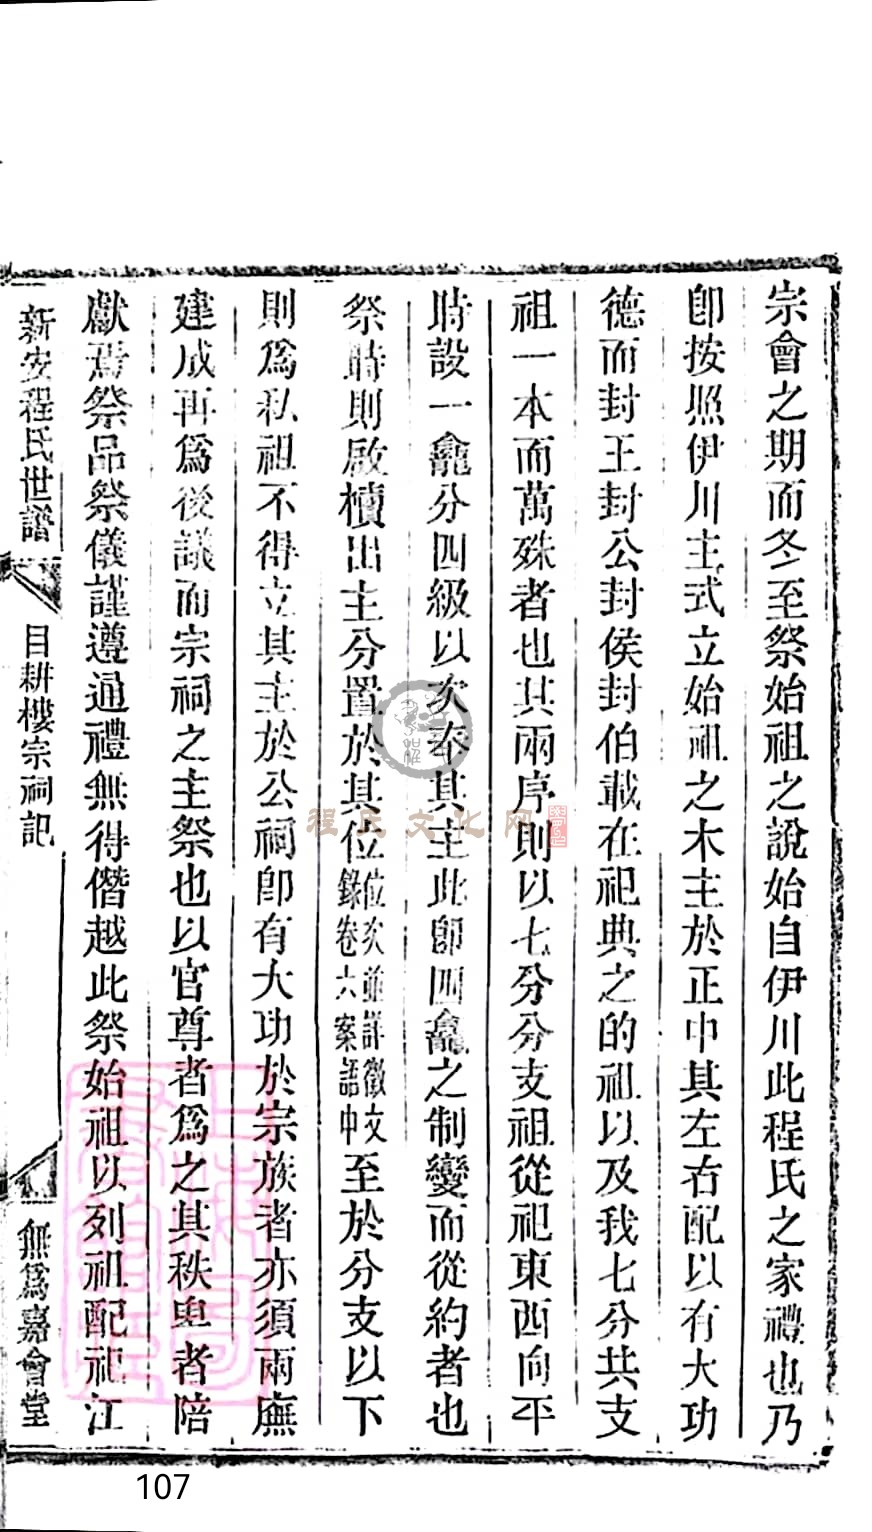 宗會之期而冬至祭始祖之說始自伊川此程氏之家禮也乃
卽按照伊川主式立始祖之木主於正中其左右配以有大功
德而封王封公封侯封伯載在祀典之的祖以及我七分共支
祖一本而萬殊者也其兩序則以七分分支祖從祀東西向平
時設一龕分四級以次奉其主此卽四龕之制變而從約者也
祭時則啟櫝出主分置於其位位次並詳徵文錄卷六案語中至於分支以下
則爲私祖不得立其主於公祠卽有大功於宗族者亦須兩廡
建成再爲後議而宗祠之主祭也以官尊者爲之其秩卑者陪
獻焉祭品祭儀謹遵通禮無得僭越此祭始祖以列祖配祀江
新安程氏世譜 目耕樓宗祠記 無爲嘉會堂
程氏文化网
107